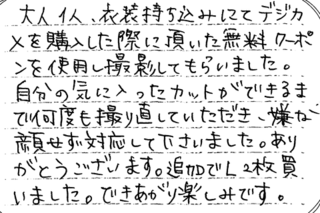 大人1人、衣装持ち込みにてデジカ
メを購入した際に頂いた無料クーポ
ンを使用し撮影してもらいました。
自分の気に入ったカットができるま
で何度も撮り直していただき、嫌な
顔せず対応して下さいました。あり
がとうございます。追加でL2枚買
いました。できあがり楽しみです。